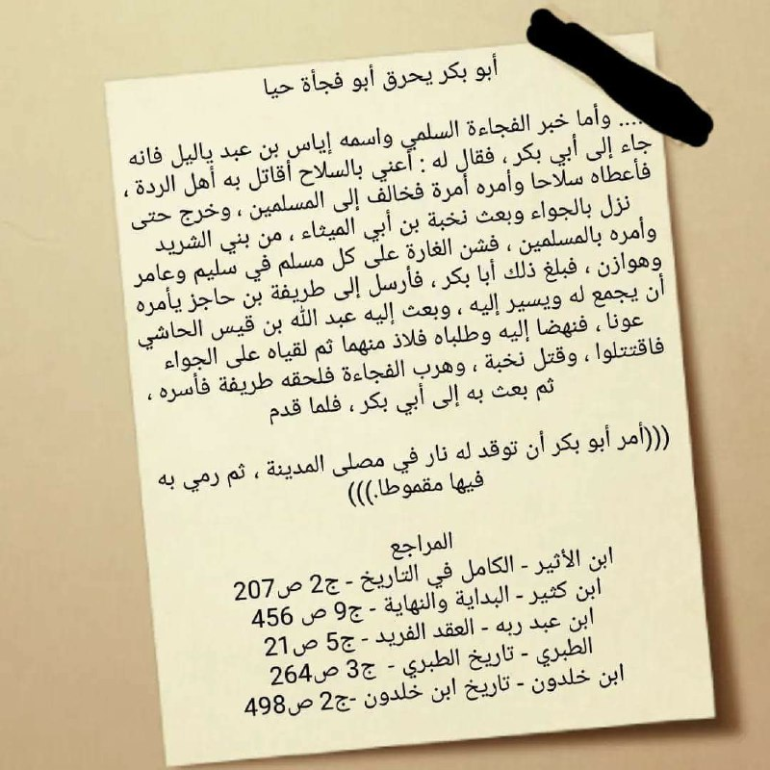 أبو بكر يحرق أبو فجأة حيا
.... وأما خبر الفجاءة السلمي واسمه إياس بن عبد ياليل فانه
جاء إلى أبي بكر ، فقال له : أعني بالسلاح أقاتل به أهل الردة ،
فأعطاه سلاحا وأمره أمرة فخالف إلى المسلمين ، وخرج حتى
نزل بالجواء وبعث نخبة بن أبي الميثاء ، من بني الشريد
وأمره بالمسلمين ، فشن الغارة على كل مسلم في سليم وعامر
وهوازن ، فبلغ ذلك أبا بكر ، فأرسل إلى طريفة بن حاجز يأمره
أن يجمع له ويسير إليه ، وبعث إليه عبد الله بن قيس الحاشي
عونا ، فنهضا إليه وطلباه فلاذ منهما ثم لقياه على الجواء
فاقتتلوا ، وقتل نخبة ، وهرب الفجاءة فلحقه طريفة فأسره ،
ثم بعث به إلى أبي بكر ، فلما قدم
(((أمر أبو بكر أن توقد له نار في مصلى المدينة ، ثم رمي به
فيها مقموطا.)))
المراجع
ابن الأثير - الكامل في التاريخ - ج2 ص207
ابن كثير - البداية والنهاية - ج9 ص 456
ابن عبد ربه - العقد الفريد - ج5 ص21
الطبري - تاريخ الطبري - ج3 ص264
ابن خلدون - تاريخ ابن خلدون -ج2 ص498